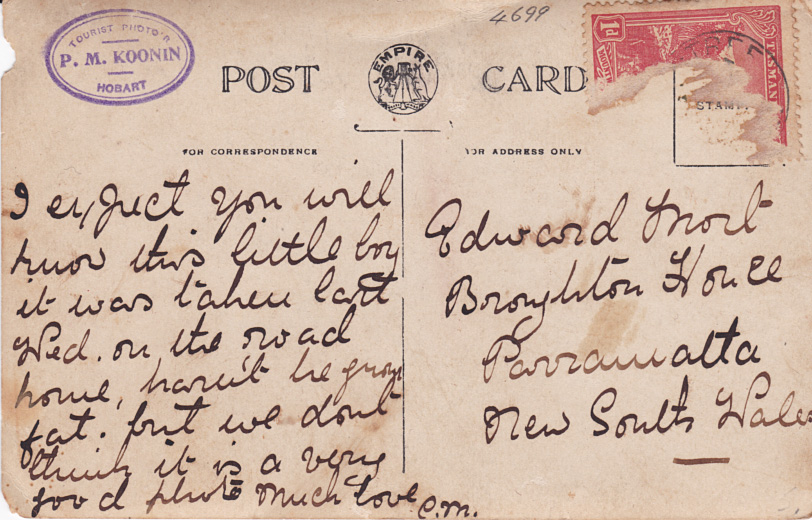 4699
TOURIST PHOTO'R
P. M. KOONIN
HOBART
POST CARD
EMPIRE
1d
TASMAN
STAMP
FOR CORRESPONDENCE
FOR ADDRESS ONLY
I expect you will
know this little boy
it was taken last
Wed. on the road
home, hasn't he grown
fat. but we dont
think it is a very
good photo Much Love
C.M.
Edward Mort
Broughton House
Parramatta
New South Wales